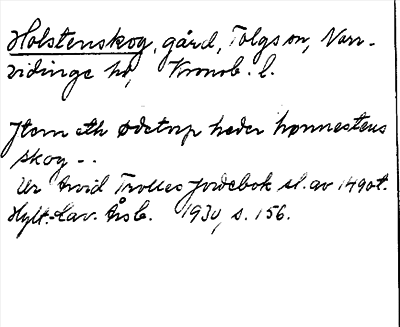 Holstenskog, gård, Tolgs sn, Norr-
vidinge hd, Kronob. l.
Item eth ødetorp heder honnestens
skog --
Ur Arvid Trolles jordebok sl. av 1490t.
Hylt.-Cav. Årsb. 1930, s. 156.